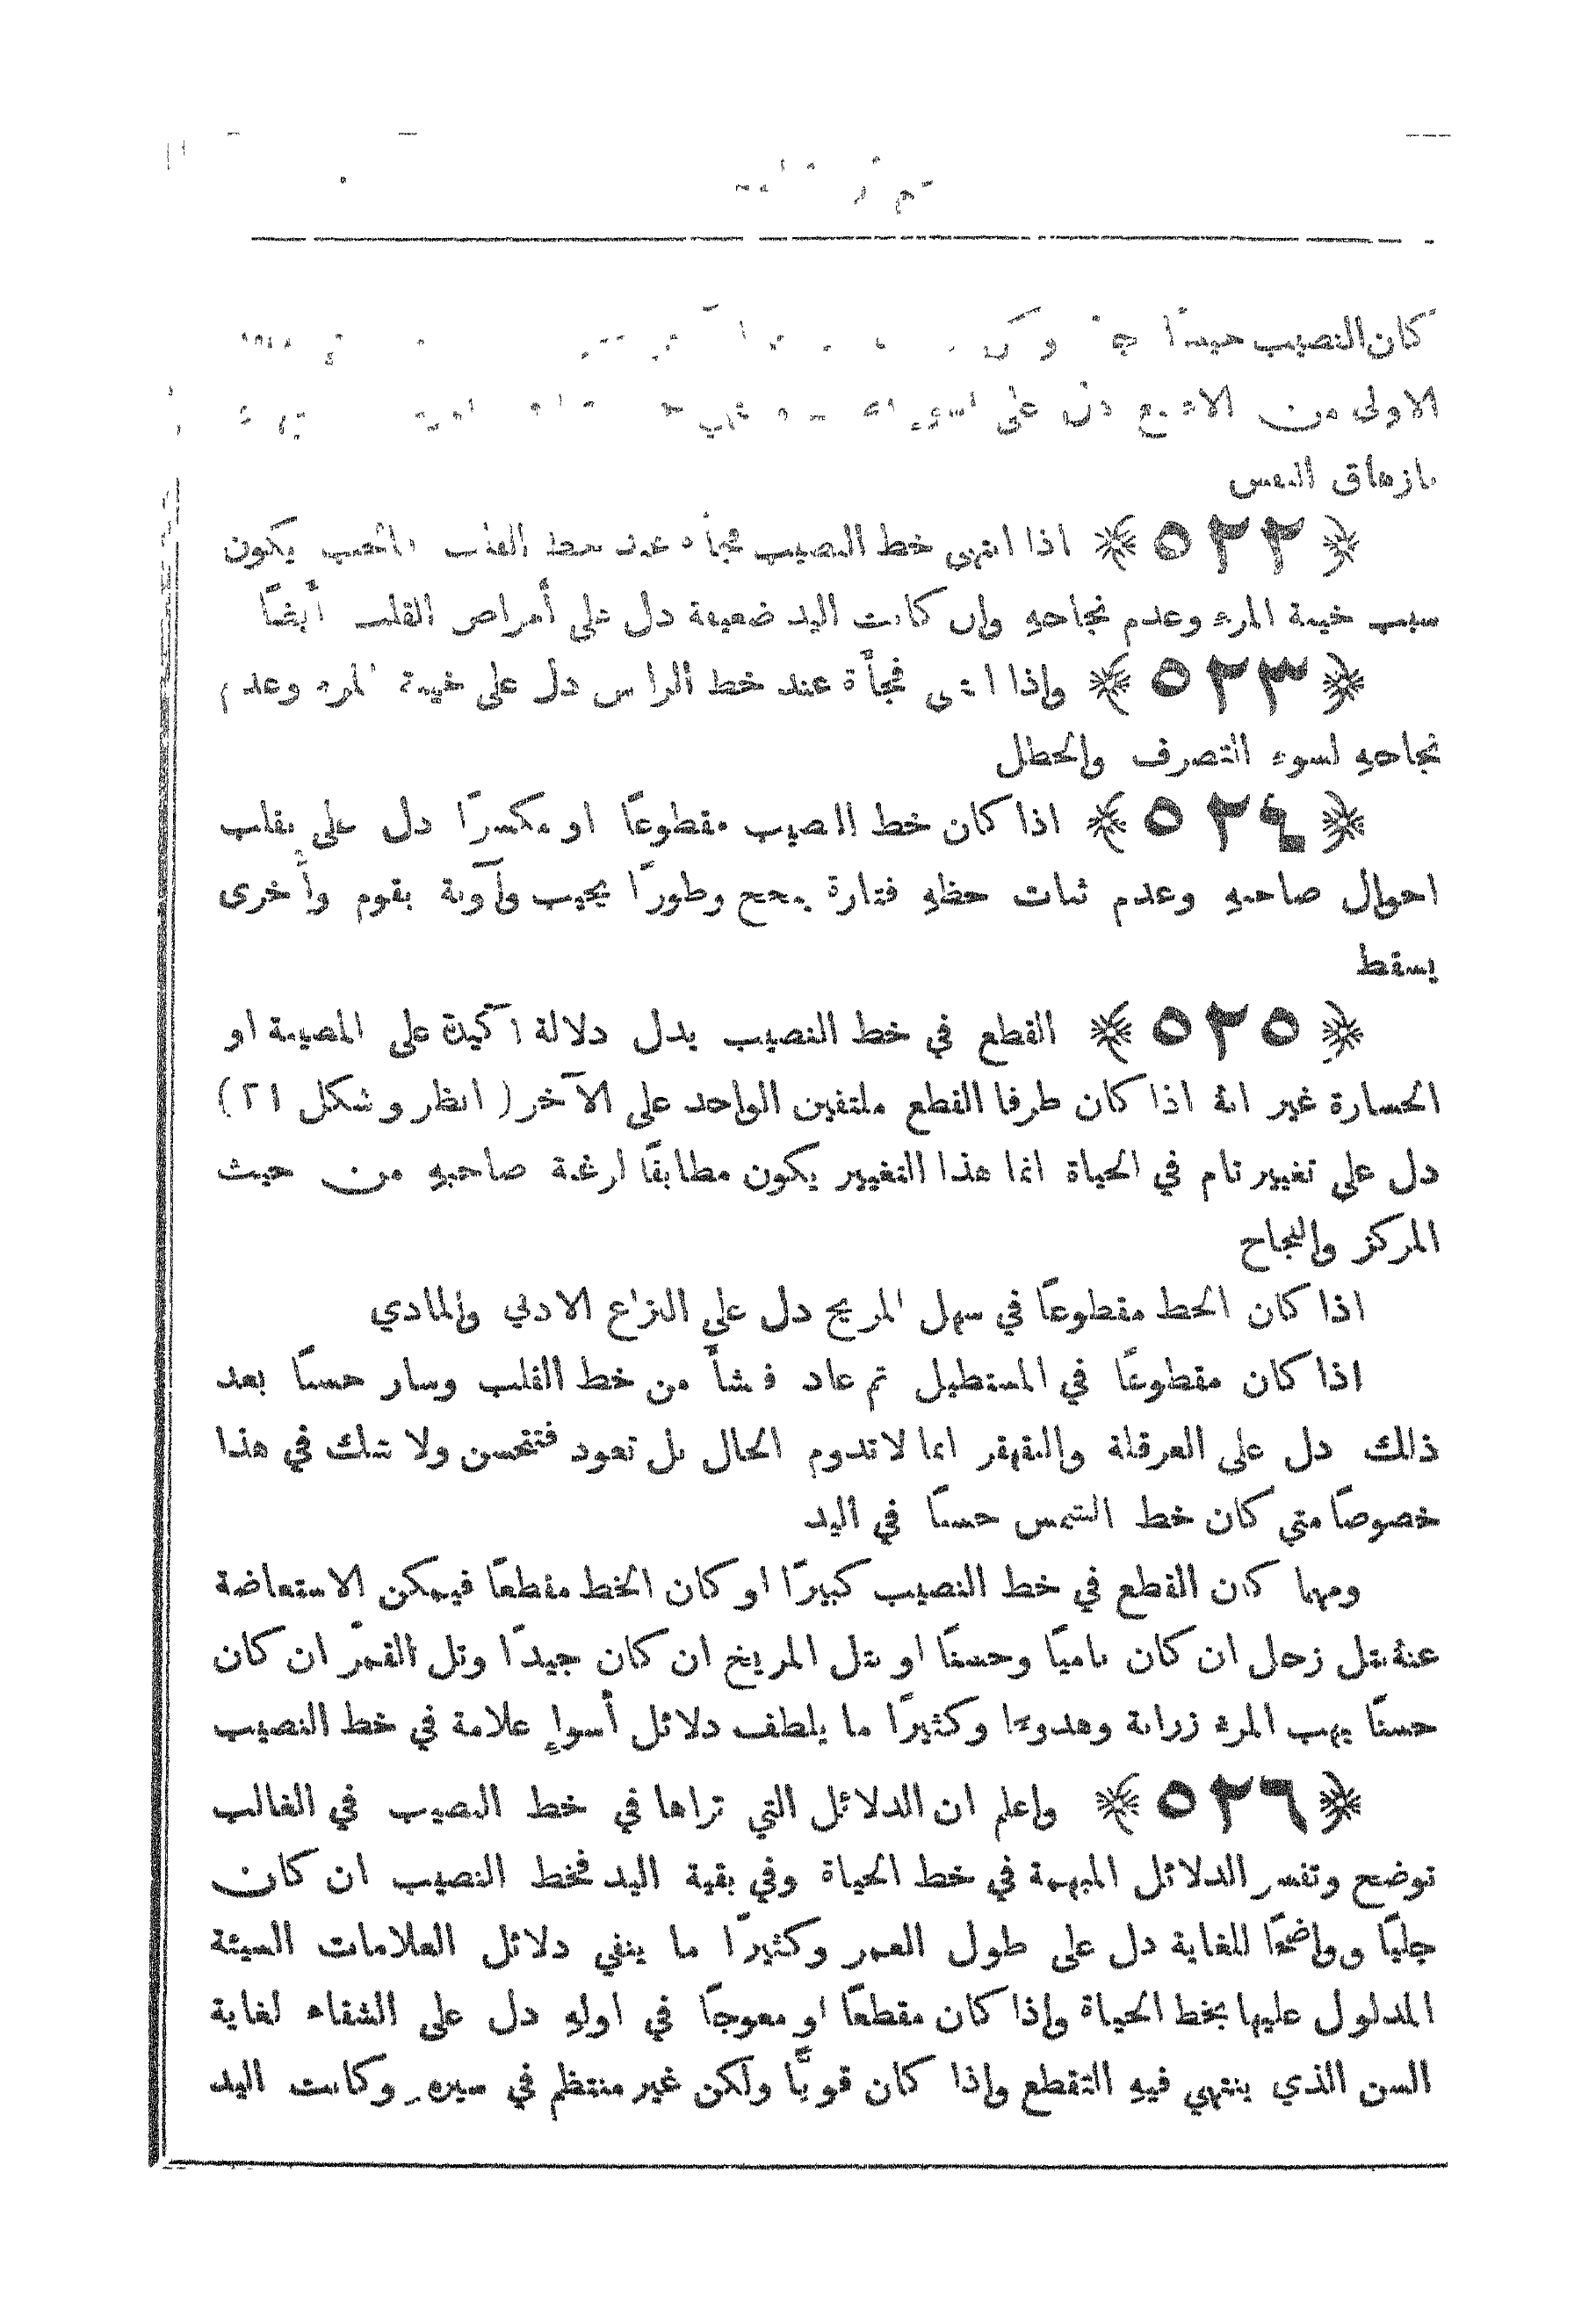 كان النصيب جيدًا
الاولى من على
بازهاق النفس
﴿ ٥٢٢ ﴾ اذا انتهى خط النصيب فجأة عند خط القلب يكون
سبب خيبة المرء وعدم نجاحهِ وان كانت اليد ضعيفة دل على أمراض القلب أيضًا
﴿ ٥٢٣ ﴾ واذا انتهى فجأة عند خط الراس دل على خيبة المرء وعدم
نجاحهِ لسوء التصرف والخطل
﴿ ٥٢٤ ﴾ اذا كان خط النصيب مقطوعًا او مكسرًا دل على تقلب
احوال صاحبهِ وعدم ثبات حظهِ فتارة ينجح وطورًا يخيب وآونة يقوم وأُخرى
يسقط
﴿ ٥٢٥ ﴾ القطع في خط النصيب يدل دلالة اكيدة على المصيبة او
الخسارة غير انهُ اذا كان طرفا القطع ملتفين الواحد على الآخر ( انظر و شكل ٢١ )
دل على تغيير تام في الحياة انما هذا التغيير يكون مطابقًا لرغبة صاحبهِ من حيث
المركز والنجاح
اذا كان الخط مقطوعًا في سهل المريخ دل على النزاع الادبي والمادي
اذا كان مقطوعًا في المستطيل ثم عاد فنشأ من خط القلب وسار حسنًا بعد
ذلك دل على العرقلة والتقهقر انما لا تدوم الحال بل تعود فتتحسن ولا شك في هذا
خصوصًا متى كان خط الشمس حسنًا في اليد
ومهما كان القطع في خط النصيب كبيرًا او كان الخط مقطعًا فيمكن الاستعاضة
عنهُ بتل زحل ان كان ناميًا وحسنًا او بتل المريخ ان كان جيدًا وتل القمر ان كان
حسنًا يهب المرء رزانة وهدوءًا وكثيرًا ما يلطف دلائل أسوإِ علامة في خط النصيب
﴿ ٥٢٦ ﴾ واعلم ان الدلائل التي تراها في خط النصيب في الغالب
توضح وتفسر الدلائل المبهمة في خط الحياة وفي بقية اليد فخط النصيب ان كان
جليًا وواضحًا للغاية دل على طول العمر وكثيرًا ما ينفي دلائل العلامات السيئة
المدلول عليها بخط الحياة واذا كان مقطعًا او معوجًا في اولهِ دل على الشقاء لغاية
السن الذي ينتهي فيهِ التقطع واذا كان قويًّا ولكن غير منتظم في سيرهِ وكانت اليد